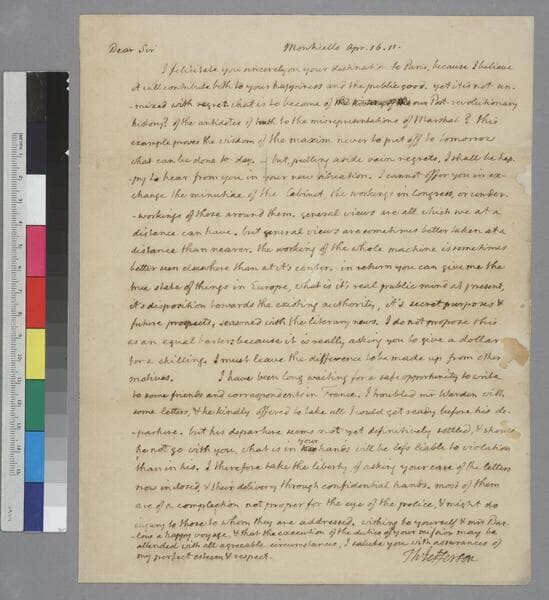 Dear Sir Monticello Apr. 16. 11.
I felicitate you sincerely on your destination to Paris, because I believe
it will contribute both to your happiness and the public good. yet it is not un-
-mixed with regret. what is to become of our Post-revolutionary
history? of the antidotes of truth to the misrepresentations of Marshal? this
example proves the wisdom of the maxim never to put off to tomorrow
what can be done to day. - but, putting aside vain regrets, I shall be hap-
-py to hear from you in your new situation. I cannot offer you in ex-
change the minutiae of the Cabinet, the workings in Congress, or under-
-workings of those around them. general views are all which we at a
distance can have. but general views are sometimes better taken at a
distance than nearer. the working of the whole machine is sometimes
better seen elsewhere than at it's center. in return you can give me the
true state of things in Europe, what is it's real public mind at present,
it's disposition towards the existing authority, it's secret purposes &
future prospects, seasoned with the literary news. I do not propose this
as an equal barter; because it is really asking you to give a dollar
for a shilling. I must leave the difference to be made up from other
motives. I have been long waiting for a safe opportunity to write
to some friends and correspondents in France. I troubled mr Warden with
some letters, & he kindly offered to take all I could get ready before his de-
-parture. but his departure seems not yet definitively settled, & should
he not go with you, what is in your hands will be less liable to violation
than in his. I therefore take the liberty of asking your care of the letters
now inclosed, & their delivery through confidential hands. most of them
are of a complection not proper for the eye of the police, & might do
injury to those to whom they are addressed. wishing to yourself & mrs Bar-
low a happy voyage, & that the execution of the duties of your mission may be
attended with all agreeable circumstances, I salute you with assurances of
my perfect esteem & respect. Th: Jefferson